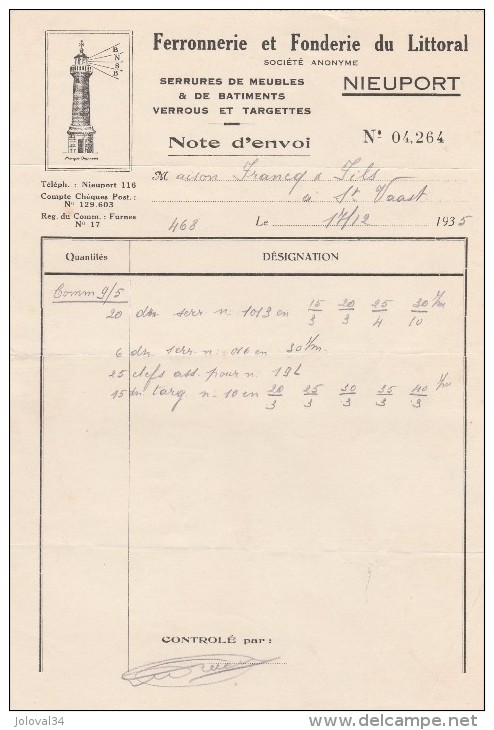 Ferronnerie et Fonderie du Littoral
SOCIÉTÉ ANONYME
SERRURES DE MEUBLES
& DE BATIMENTS
VERROUS ET TARGETTES
NIEUPORT
BNSB
Note d'envoi
Nº 04,264
Téléph. : Nieuport 116
Compte Chèques Post. :
Nº 129.603
Reg. du Comm. : Furnes
Nº 17
Maison Francq & Fils
à St Vaast
468 Le 17/12 1935
Quantités DÉSIGNATION
Comm 9/5
20 dn serr n: 1013 en 15/3 20/3 25/4 30/10 m/m
6 dn serr n: 016 en 30 m/m
25 clefs ass. pour n. 19L
15 dn targ n: 10 en 20/3 25/3 30/3 35/3 40/3 m/m
CONTROLÉ par :
joloval34
delcampe.net